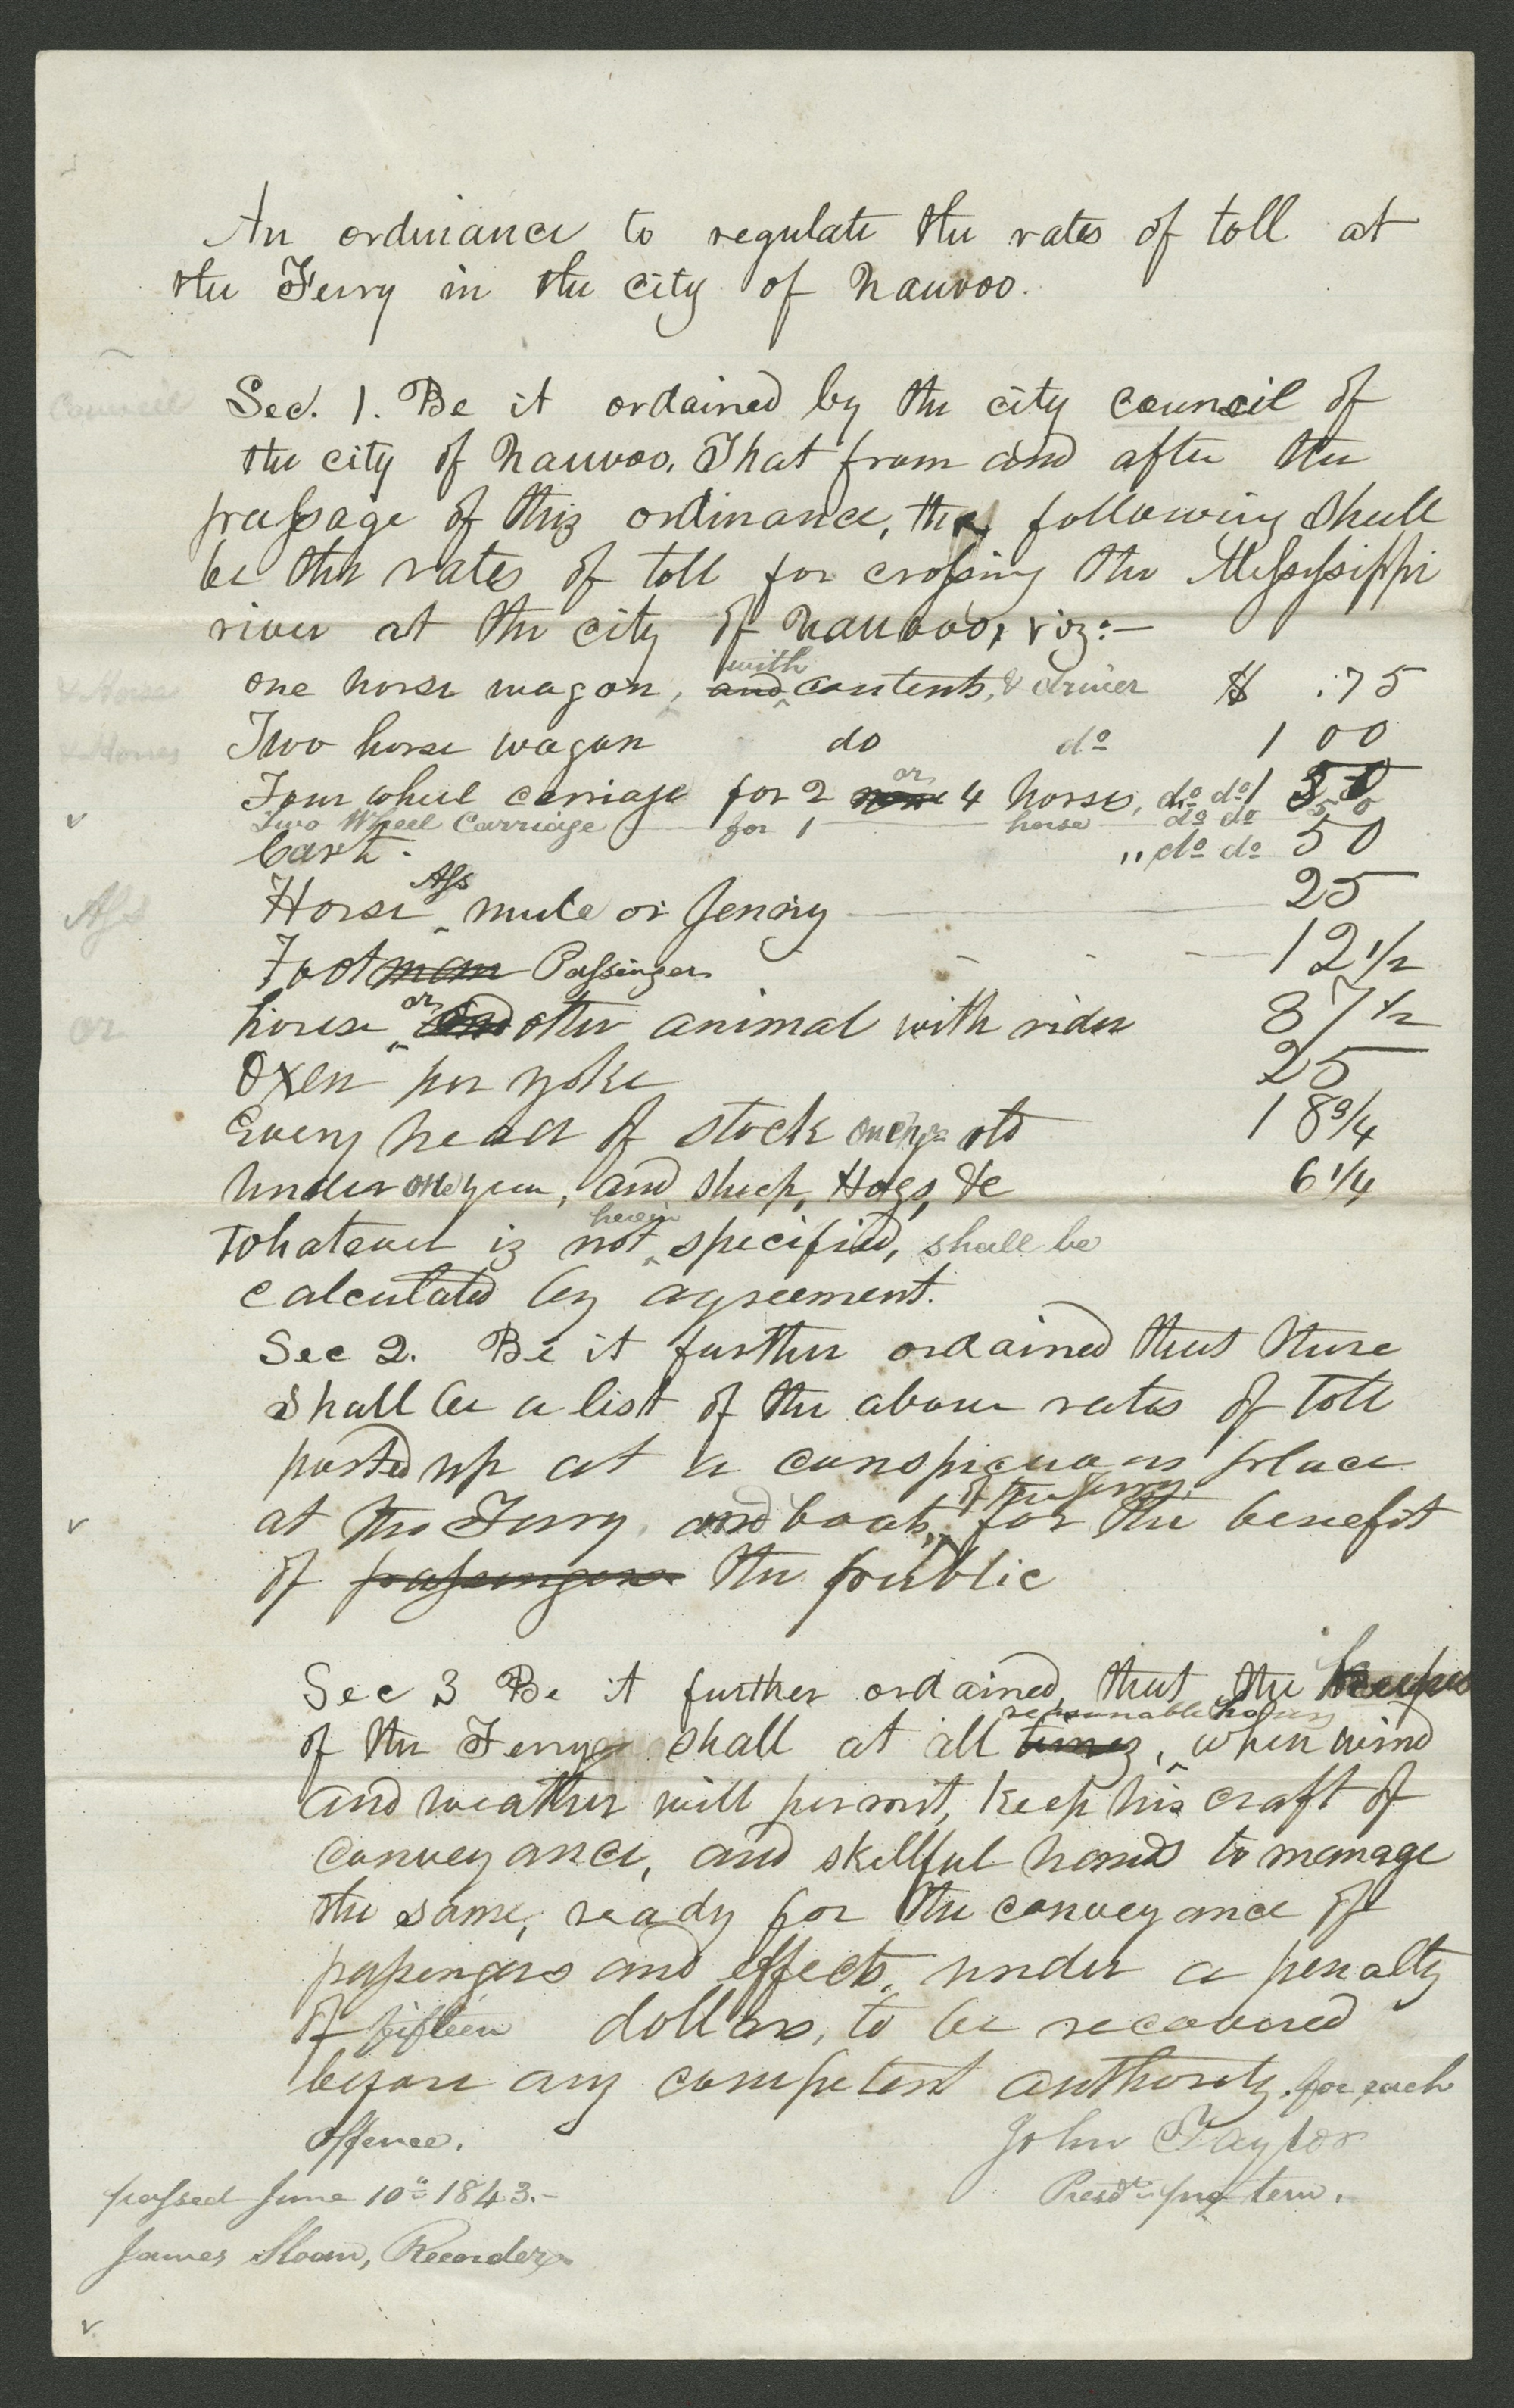 An ordinance to regulate the rates of toll at
the Ferry in the city of Nauvoo.
council
Sec. 1. Be it ordained by the city council of
the city of Nauvoo. That from and after the
passage of this ordinance, the following shall
be the rates of toll for crossing the Mississippi
river at the city of Nauvoo, viz:—
with
one horse wagon, and contents, & driver $ .75
& Horse
Two horse wagon do do 1 00
& Horses
or
Four wheel carriage for 2 4 horses, do do 1 50
Two Wheel Carriage for 1 horse do do 50
Cart. " do do 50
Ass
Horse mule or Jenny 25
Ass
Footman Passengers 12 1/2
or
horse and other animal with rider 37 1/2
or
Oxen per yoke 25
Every head of stock one year old 18 3/4
under one year, and sheep, Hogs, &c 6 1/4
herein
Whatever is not specified, shall be
calculated by agreement.
Sec 2. Be it further ordained that there
shall be a list of the above rates of toll
posted up at a conspicuous place
of the ferry
at the Ferry, and boats, for the benefit
of passengers the public
Sec 3 Be it further ordained, that the keeper
reasonable hours
of the Ferry shall at all times, when wind
and weather will permit, keep his craft of
conveyance, and skillful hands to manage
the same, ready for the conveyance of
passengers and effects, under a penalty
of fifteen dollars, to be recovered
before any competent authority. for each
offence.
John Taylor
Presdt. pro tem.
passed June 10th 1843.—
James Sloan, Recorder